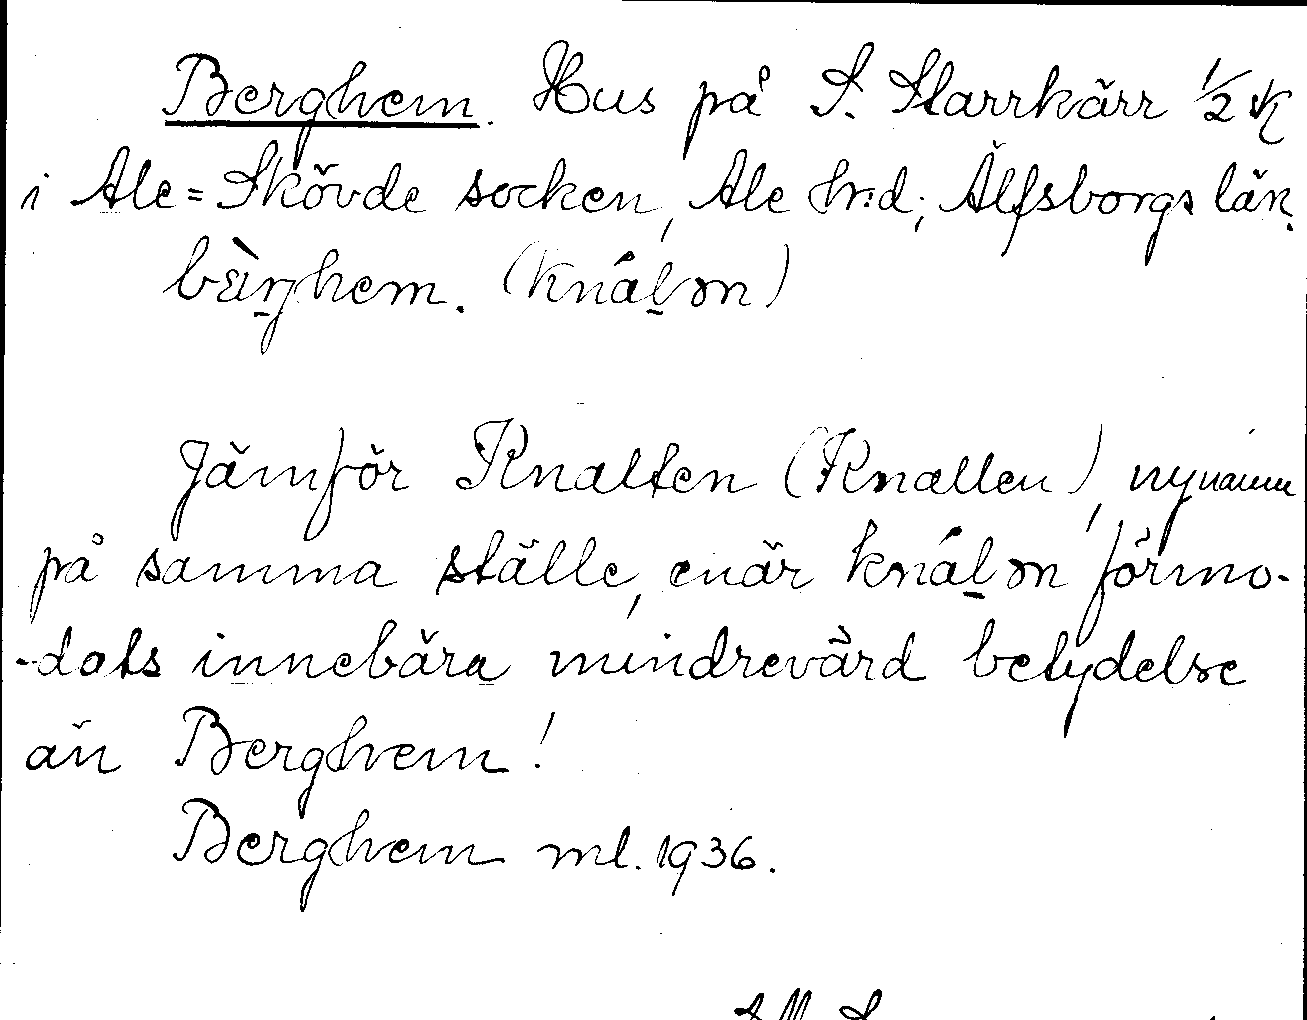 Berghem. Hus på S. Starrkärr 1/2 
i Ale=Skövde socken, Ale hrd; Älfsborgs län.
bæ̀rghem. (knáḻən)
Jämför Knalten (Knallen), nynamn
på samma ställe, enär knáḻən förmo-
-dats innebära mindrevärd betydelse
än Berghem!
Berghem ml. 1936.